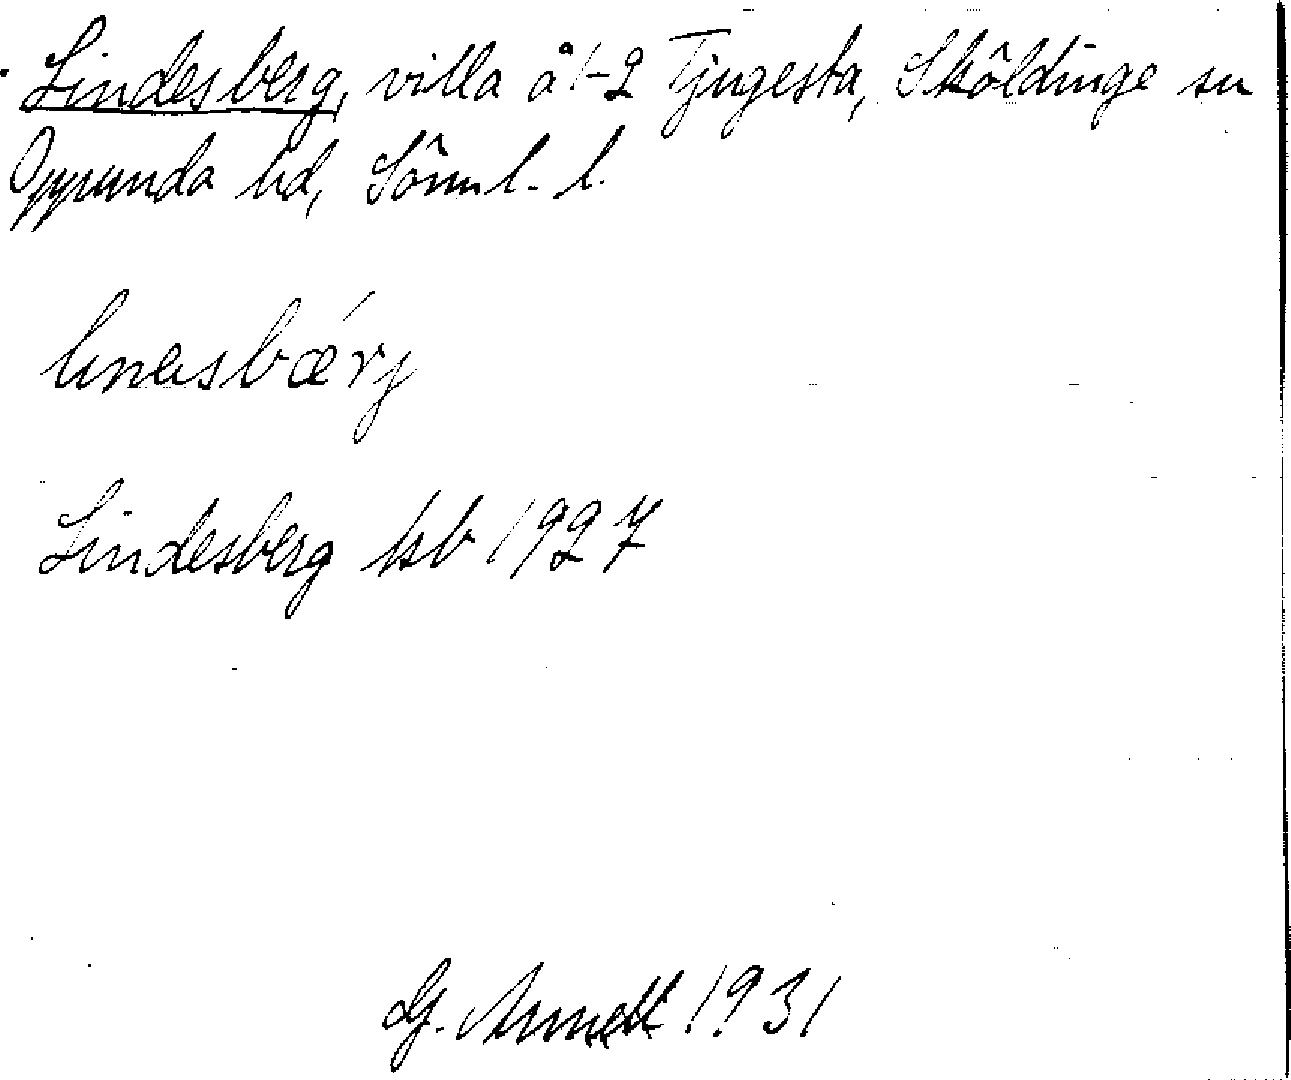 Lindesberg, villa å 1-2 Tjugesta, Sköldinge sn
Oppunda hd, Sörml. l.
linasbærj
Lindesberg ksb 1927
G. 1931